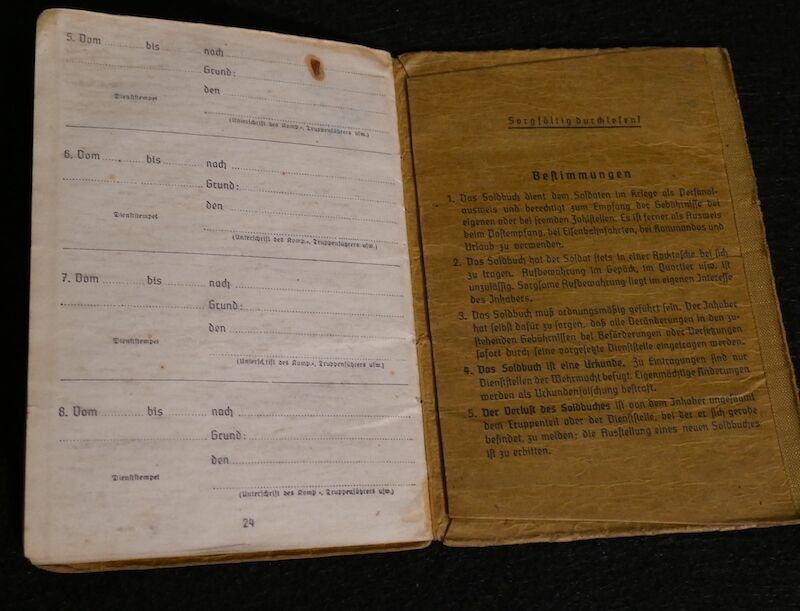 5. Vom ............ bis ............ nach ............
Grund: ............
den ............
Dienststempel
(Unterschrift des Komp.-, Truppenführers usw.)
6. Vom ............ bis ............ nach ............
Grund: ............
den ............
Dienststempel
(Unterschrift des Komp.-, Truppenführers usw.)
7. Vom ............ bis ............ nach ............
Grund: ............
den ............
Dienststempel
(Unterschrift des Komp.-, Truppenführers usw.)
8. Vom ............ bis ............ nach ............
Grund: ............
den ............
Dienststempel
(Unterschrift des Komp.-, Truppenführers usw.)
24
Sorgfältig durchlesen!
Bestimmungen
1. Das Soldbuch dient dem Soldaten im Kriege als Personal-
ausweis und berechtigt zum Empfang der Gebührnisse bei
eigenen oder bei fremden Zahlstellen. Es ist ferner als Ausweis
beim Postempfang, bei Eisenbahnfahrten, bei Kommandos und
Urlaub zu verwenden.
2. Das Soldbuch hat der Soldat stets in einer Rocktasche bei sich
zu tragen. Aufbewahrung im Gepäck, im Quartier usw. ist
unzulässig. Sorgsame Aufbewahrung liegt im eigenen Interesse
des Inhabers.
3. Das Soldbuch muß ordnungsmäßig geführt sein. Der Inhaber
hat selbst dafür zu sorgen, daß alle Veränderungen in den zu-
stehenden Gebührnissen bei Beförderungen oder Versetzungen
sofort durch seine vorgesetzte Dienststelle eingetragen werden.
4. Das Soldbuch ist eine Urkunde. Zu Eintragungen sind nur
Dienststellen der Wehrmacht befugt. Eigenmächtige Änderungen
werden als Urkundenfälschung bestraft.
5. Der Verlust des Soldbuches ist von dem Inhaber ungesäumt
dem Truppenteil oder der Dienststelle, bei der er sich gerade
befindet, zu melden; die Ausstellung eines neuen Soldbuches
ist zu erbitten.